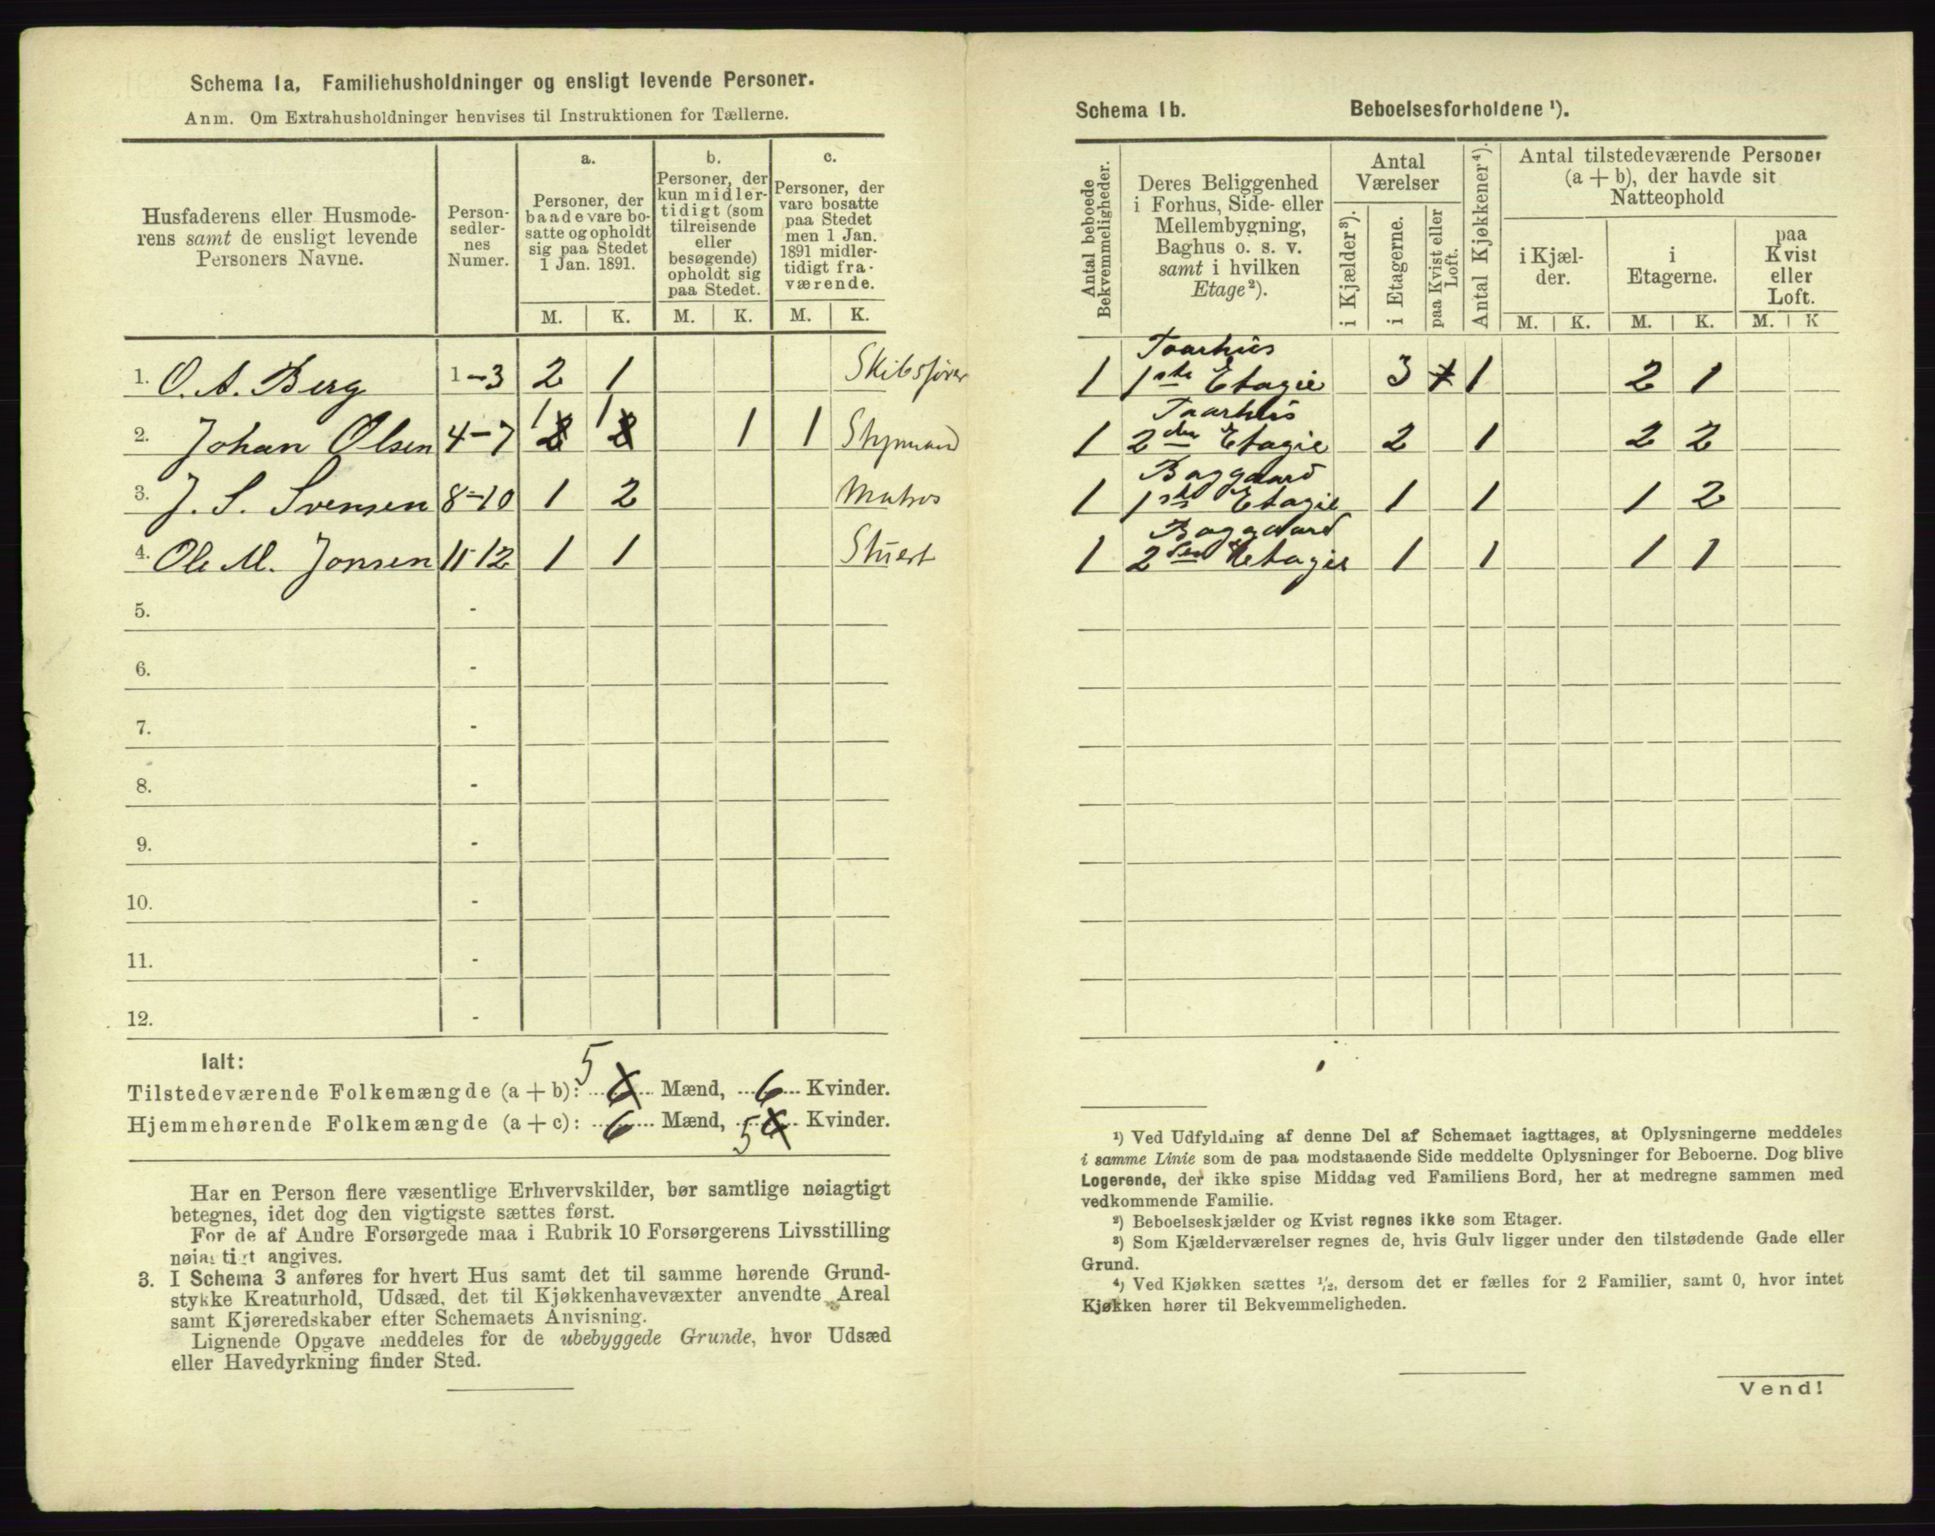 Schema 1a, Familiehusholdninger og ensligt levende Personer.
Anm. Om Extrahusholdninger henvises til Instruktionen for Tællerne.
Husfaderens eller Husmode-
rens samt de ensligt levende
Personers Navne.
Person-
sedler-
nes
Numer.
a.
Personer, der
baade vare bo-
satte og opholdt
sig paa Stedet
1 Jan. 1891.
b.
Personer, der
kun midler-
tidigt (som
tilreisende
eller
besøgende)
opholdt sig
paa Stedet.
c.
Personer, der
vare bosatte
paa Stedet
men 1 Jan.
1891 midler-
tidigt fra-
værende.
M. K. M. K. M. K.
1. O. A. Berg 1-3 2 1 Skibsfører
2. Johan Olsen 4-7 1 2 1 2 1 1 Styrmand
3. J. S. Svensen 8-10 1 2 Matros
4. Ole M. Jonsen 11-12 1 1 Stuert
5. -
6. -
7. -
8. -
9. -
10. -
11. -
12. -
Ialt:
Tilstedeværende Folkemængde (a + b): 5 6 Mænd, 6 Kvinder.
Hjemmehørende Folkemængde (a + c): 6 Mænd, 5 6 Kvinder.
Har en Person flere væsentlige Erhvervskilder, bør samtlige nøiagtigt
betegnes, idet dog den vigtigste sættes først.
For de af Andre Forsørgede maa i Rubrik 10 Forsørgerens Livsstilling
nøiagtigt angives.
3. I Schema 3 anføres for hvert Hus samt det til samme hørende Grund-
stykke Kreaturhold, Udsæd, det til Kjøkkenhavevæxter anvendte Areal
samt Kjøreredskaber efter Schemaets Anvisning.
Lignende Opgave meddeles for de ubebyggede Grunde, hvor Udsæd
eller Havedyrkning finder Sted.
Schema 1b. Beboelsesforholdene ¹).
Antal beboede
Bekvemmeligheder.
Deres Beliggenhed
i Forhus, Side- eller
Mellembygning,
Baghus o. s. v.
samt i hvilken
Etage²).
Antal
Værelser
i Kjælder³).
i Etagerne.
paa Kvist eller
Loft.
Antal Kjøkkener⁴).
Antal tilstedeværende Personer
(a + b), der havde sit
Natteophold
i Kjæl-
der.
i
Etagerne.
paa
Kvist
eller
Loft.
M. K. M. K. M. K
Faarhus
1 1ste Etagie 3 1 1 2 1
Faarhus
1 2den Etagie 2 1 2 2
Baggaard
1 1ste Etagie 1 1 1 2
Baggaard
1 2den Etagie 1 1 1 1
¹) Ved Udfyldning af denne Del af Schemaet iagttages, at Oplysningerne meddeles
i samme Linie som de paa modstaaende Side meddelte Oplysninger for Beboerne. Dog blive
Logerende, der ikke spise Middag ved Familiens Bord, her at medregne sammen med
vedkommende Familie.
²) Beboelseskjælder og Kvist regnes ikke som Etager.
³) Som Kjælderværelser regnes de, hvis Gulv ligger under den tilstødende Gade eller
Grund.
⁴) Ved Kjøkken sættes ½, dersom det er fælles for 2 Familier, samt 0, hvor intet
Kjøkken hører til Bekvemmeligheden.
Vend!